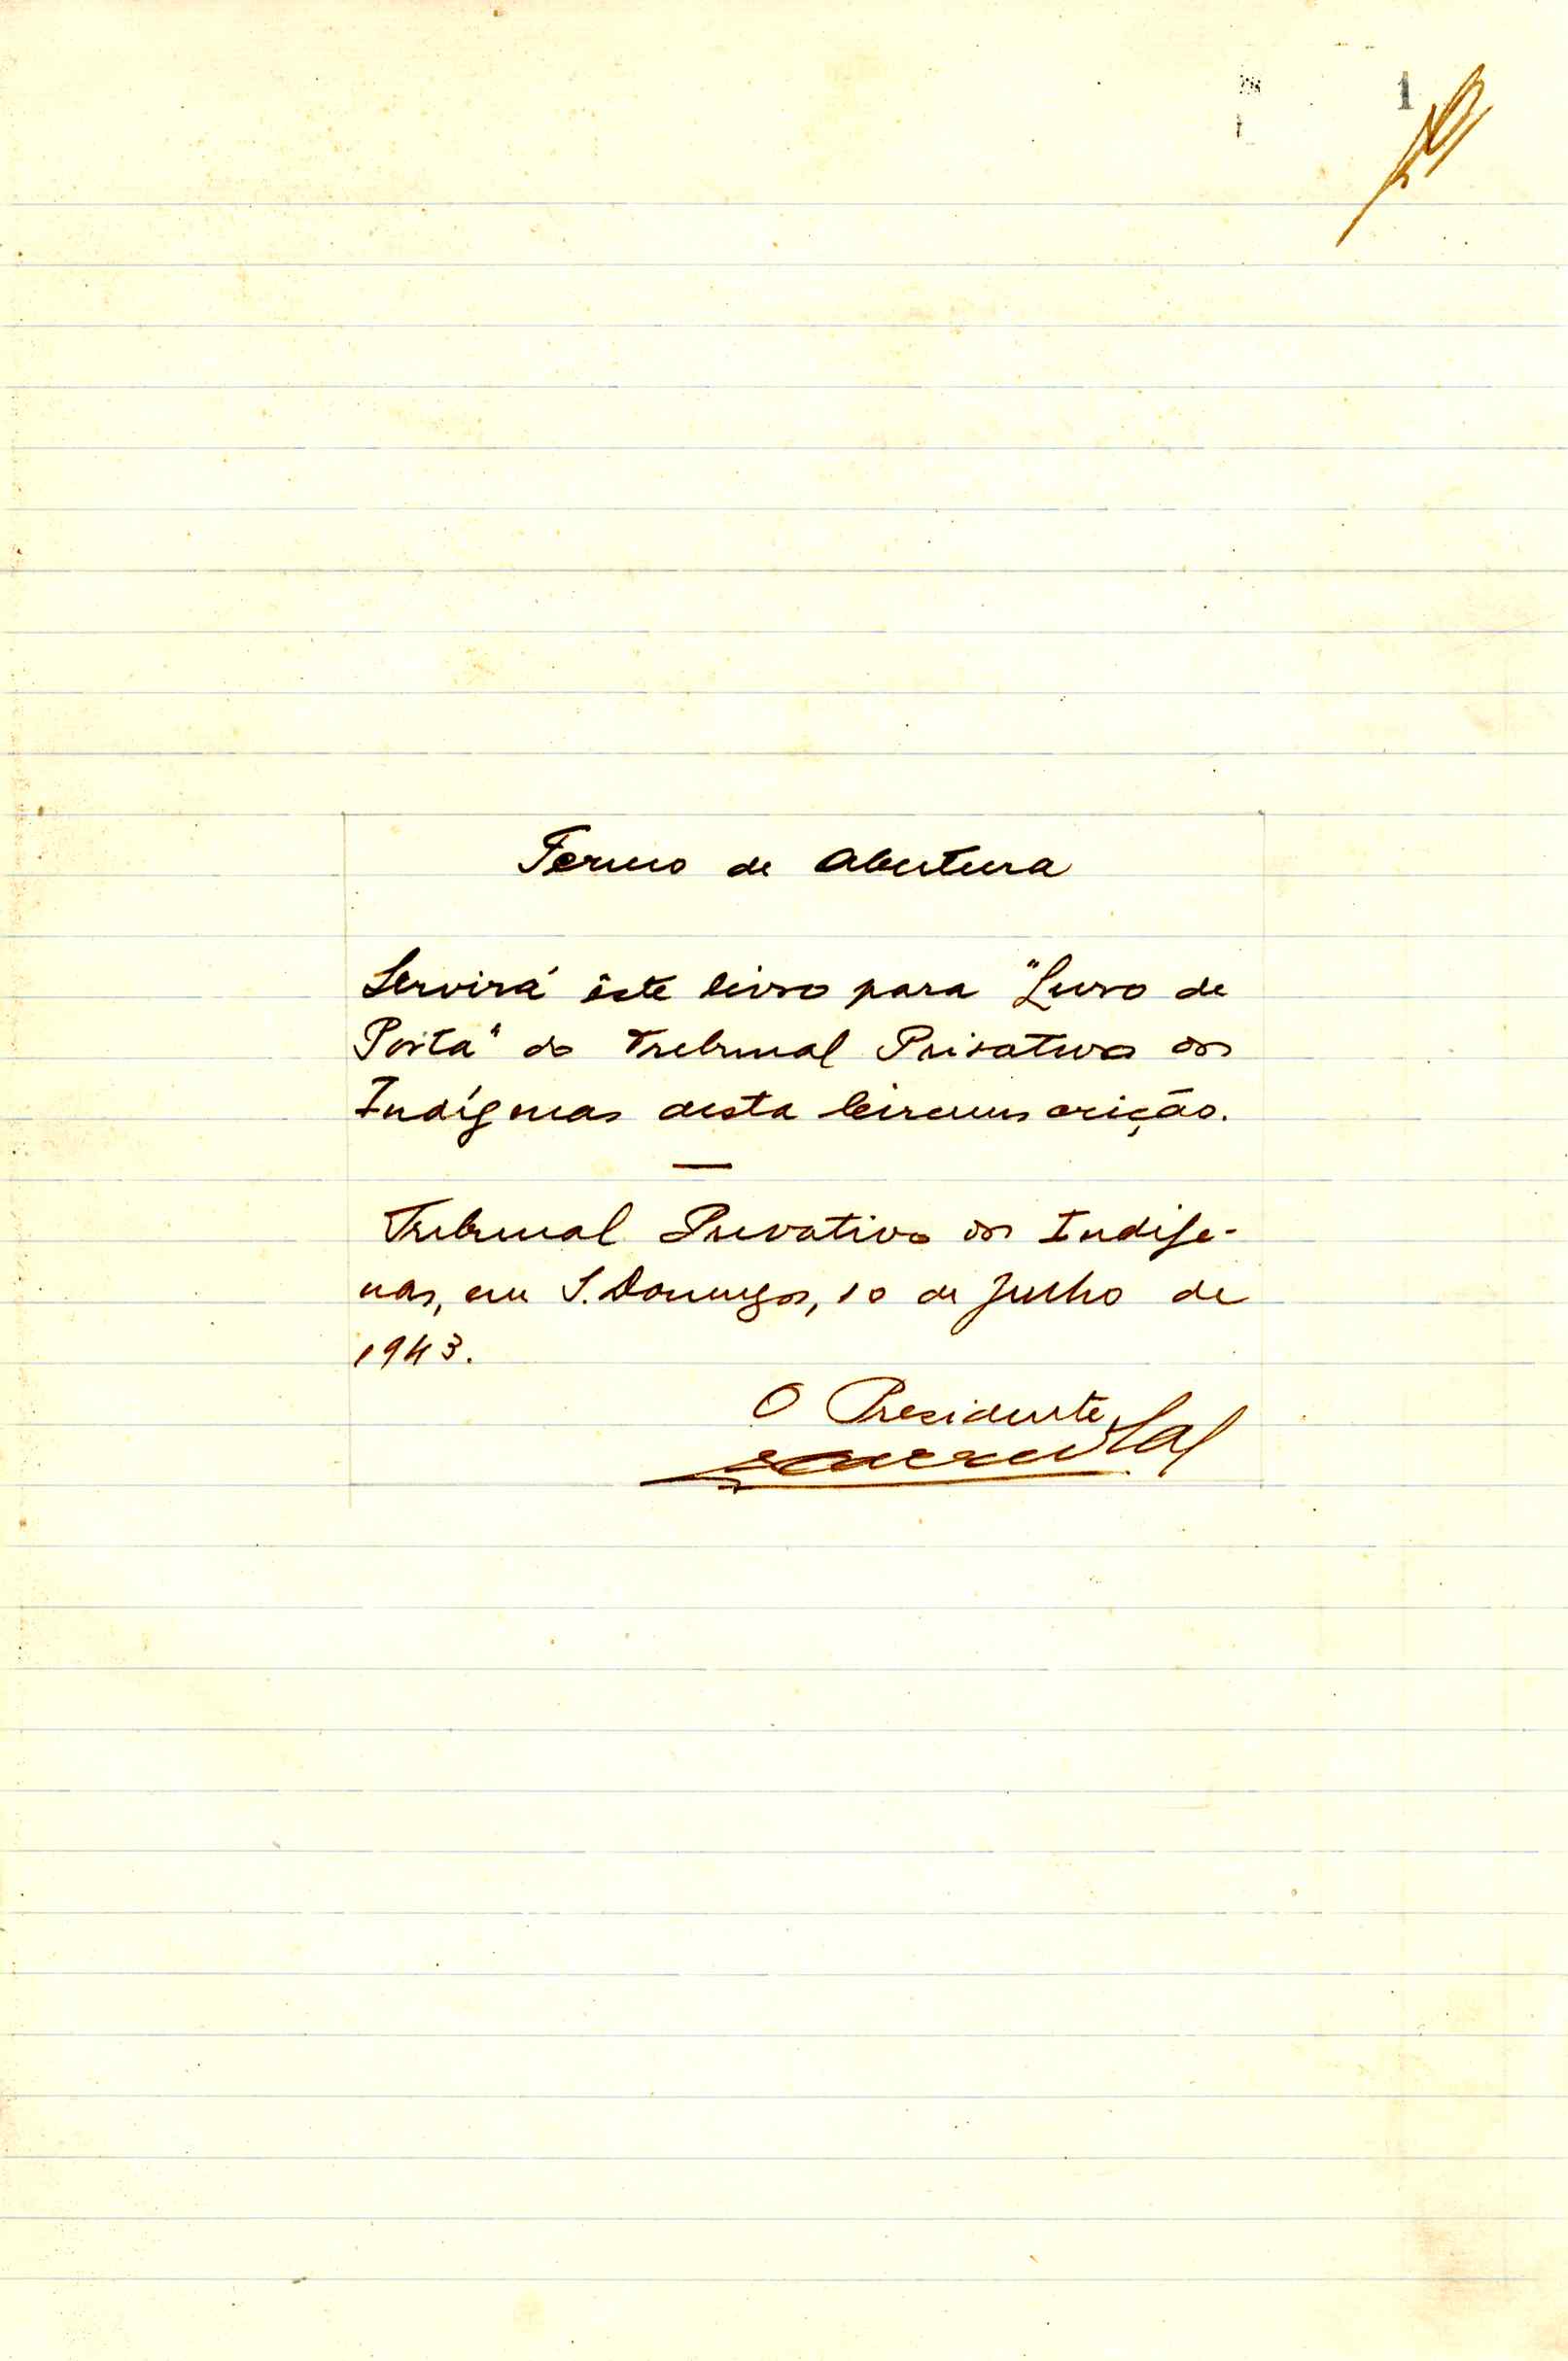 1
Termo de Abertura
Servirá êste livro para "Livro de
Porta" do Tribunal Privativo dos
Indígenas desta Circunscrição.
—
Tribunal Privativo dos Indige-
nas, em S. Domingos, 10 de Julho de
1943.
O Presidente,